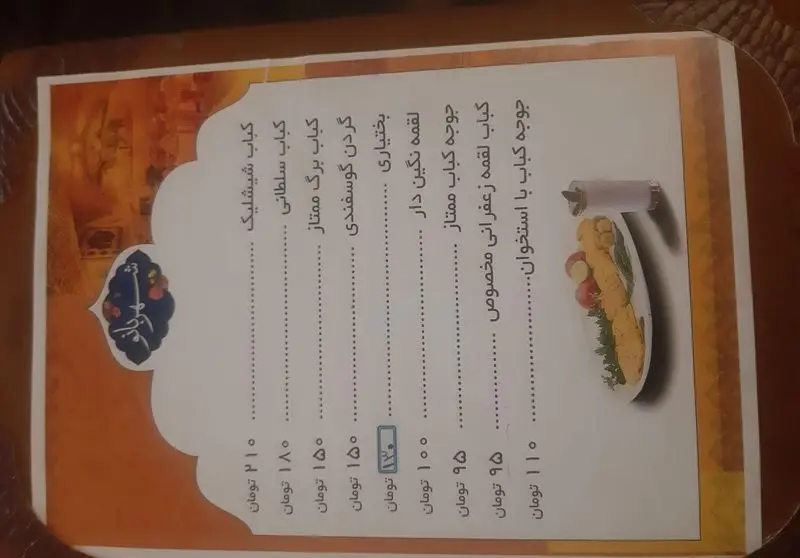 شهربانو
کباب شیشلیک ........................ ۲۱۰ تومان
کباب سلطانی ........................ ۱۸۰ تومان
کباب برگ ممتاز ........................ ۱۵۰ تومان
گردن گوسفندی ........................ ۱۵۰ تومان
بختیاری ........................ ۱۳۰ تومان
لقمه نگین دار ........................ ۱۰۰ تومان
جوجه کباب ممتاز ........................ ۹۵ تومان
کباب لقمه زعفرانی مخصوص ............ ۹۵ تومان
جوجه کباب با استخوان .................... ۱۱۰ تومان